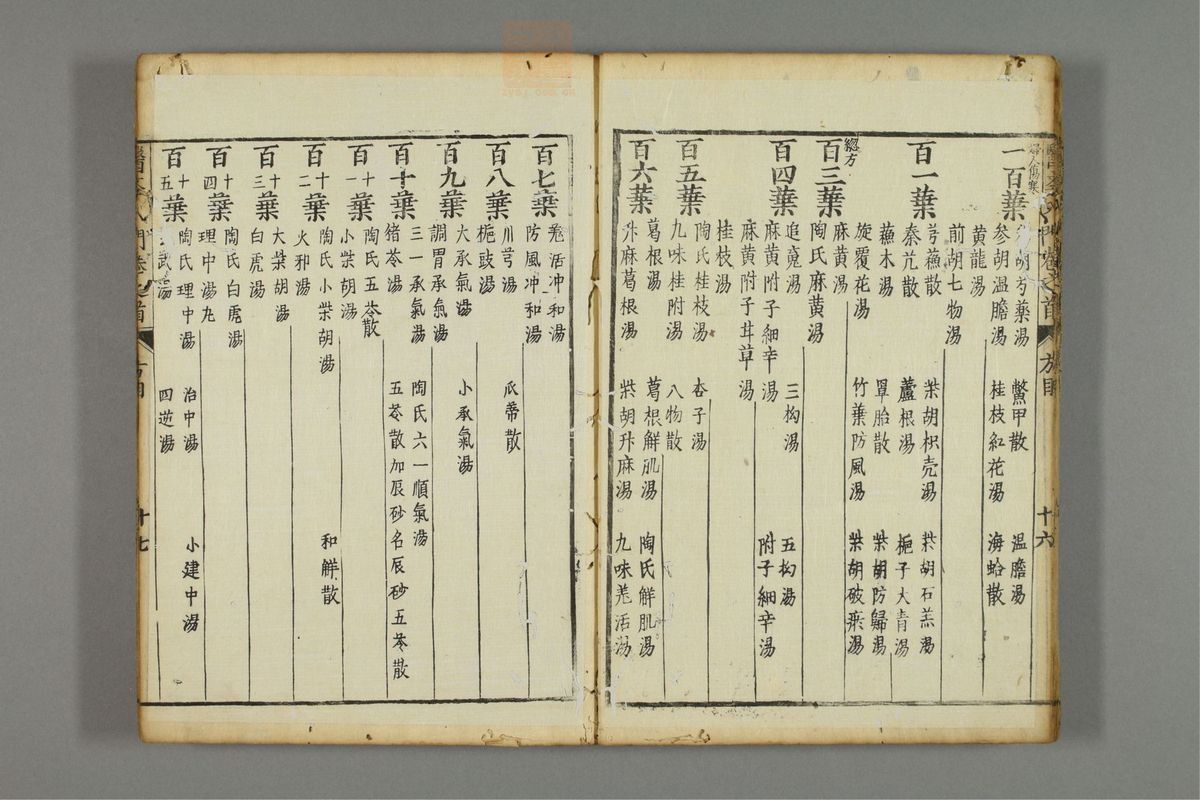 婦人傷寒
一百葉
胡芍藥湯 鱉甲散 温膽湯
參胡温膽湯 桂枝紅花湯 海蛤散
黃龍湯
前胡七物湯
百一葉
芎蘓散 柴胡枳壳湯 柴胡石羔湯
秦艽散 蘆根湯 梔子大青湯
蘓木湯 罩胎散 柴胡防歸湯
旋覆花湯 竹葉防風湯 柴胡破瘀湯
百三葉
總方
陶氏麻黃湯
百四葉
追䰟湯 三拗湯 五拗湯
麻黃附子細辛湯 附子細辛湯
麻黃附子甘草湯
桂枝湯
百五葉
陶氏桂枝湯 杏子湯
九味桂附湯 八物散
百六葉
葛根湯 葛根解肌湯 陶氏解肌湯
升麻葛根湯 柴胡升麻湯 九味羌活湯
方目
十六
百七葉
羌活冲和湯
防風冲和湯
百八葉
川芎湯 瓜蒂散
梔豉湯
百九葉
大承氣湯 小承氣湯
調胃承氣湯
百十葉
三一承氣湯 陶氏六一順氣湯
猪苓湯 五苓散加辰砂名辰砂五苓散
百十一葉
陶氏五苓散
小柴胡湯
百十二葉
陶氏小柴胡湯 和解散
火邪湯
百十三葉
大柴胡湯
白虎湯
百十四葉
陶氏白虎湯
理中湯丸
百十五葉
陶氏理中湯 治中湯 小建中湯
武湯 四逆湯
十七